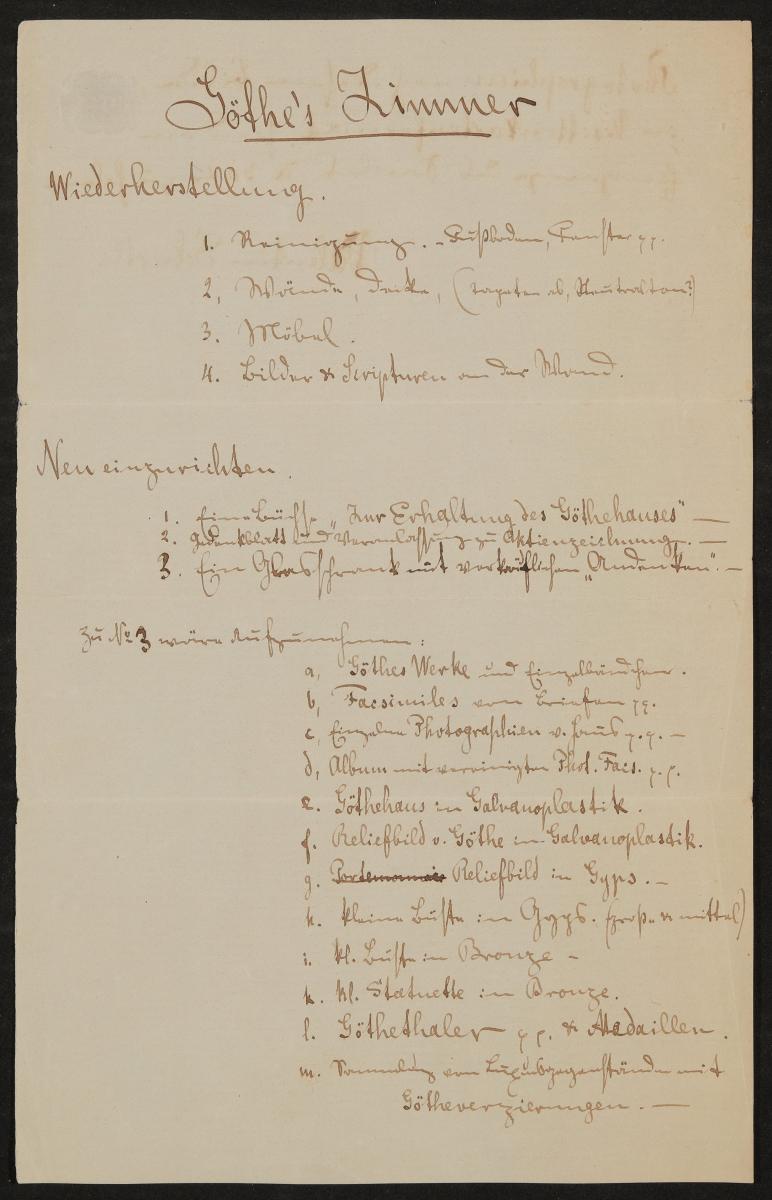 Göthe's Zimmer
Wiederherstellung.
1. Reinigung. - Fußboden, Fenster pp.
2, Wände, Decke, (Tapeten ab, Neutralton?)
3. Möbel.
4. Bilder & Scripturen an der Wand.
Neu einzurichten.
1. Eine Büchse „Zur Erhaltung des Göthehauses" —
2. Gedenkblatt und Veranlassung zu Aktienzeichnung. —
3. Ein Glasschrank mit verkäuflichen „Andenken". —
Zu No 3 wäre aufzunehmen:
a, Göthes Werke und Einzelbändchen.
b, Facsimiles von Briefen pp.
c, Einzelne Photographien v. Haus p.p. —
d, Album mit vereinigten Phot. Facs. p.p.
e. Göthehaus in Galvanoplastik.
f. Reliefbild v. Göthe in Galvanoplastik.
g. Reliefbild in Gyps. —
h. kleine Büste in Gyps. (große & mittel)
i. kl. Büste in Bronze —
k. kl. Statuette in Bronze.
l. Göthethaler pp. & Medaillen.
m. Sammlung von Luxusgegenständen mit
Götheverzierungen. —